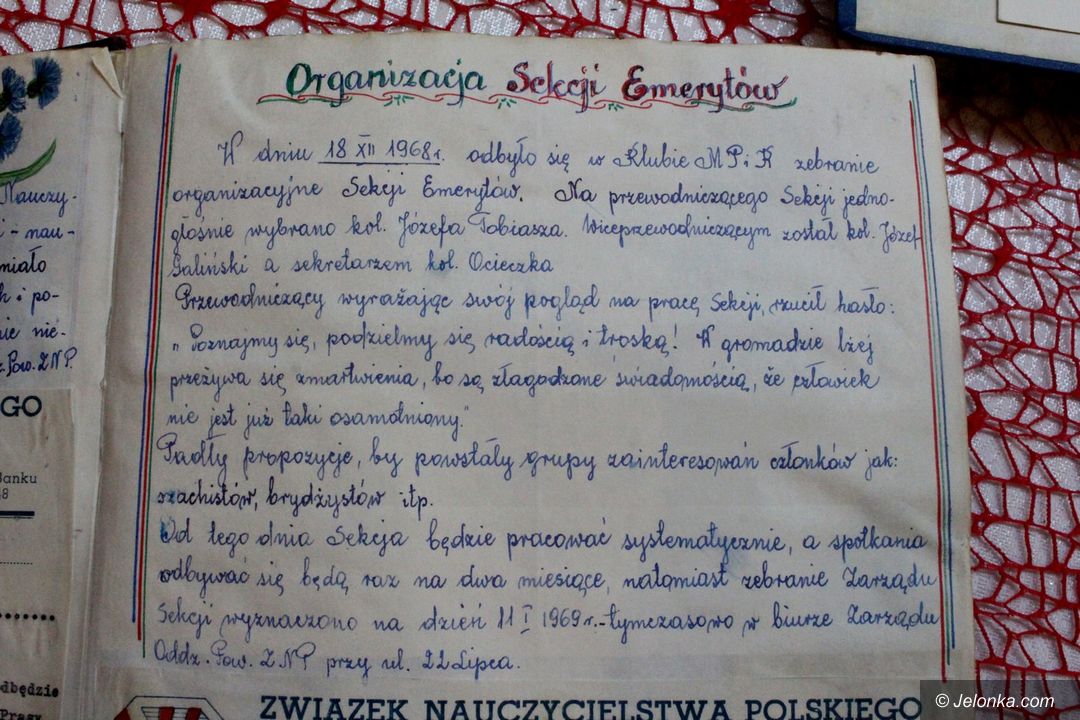 Organizacja Sekcji Emerytów
W dniu 18 XII 1968r. odbyło się w Klubie MPiK zebranie
organizacyjne Sekcji Emerytów. Na przewodniczącego Sekcji jedno-
głośnie wybrano kol. Józefa Tobiasza. Wiceprzewodniczącym został kol. Józef
Galiński a sekretarzem kol. Ocieczka
Przewodniczący wyrażając swój pogląd na pracę Sekcji, rzucił hasło:
„Poznajmy się, podzielmy się radością i troską! W gromadzie lżej
przeżywa się zmartwienia, bo są złagodzone świadomością, że człowiek
nie jest już taki osamotniony."
Padły propozycje, by powstały grupy zainteresowań członków jak:
szachistów, brydżystów itp.
Od tego dnia Sekcja będzie pracować systematycznie, a spotkania
odbywać się będą raz na dwa miesiące, natomiast zebranie Zarządu
Sekcji wyznaczono na dzień 11 I 1969r.-tymczasowo w biurze Zarządu
Oddz. Pow. ZNP przy ul. 22 Lipca.
ZWIĄZEK NAUCZYCIELSTWA POLSKIEGO
Nauczy-
i - nau-
miało
h i po-
nie nie-
z. Pow. ZNP.
GO
Banku
8
dbędzie
Prasy
© Jelonka.com